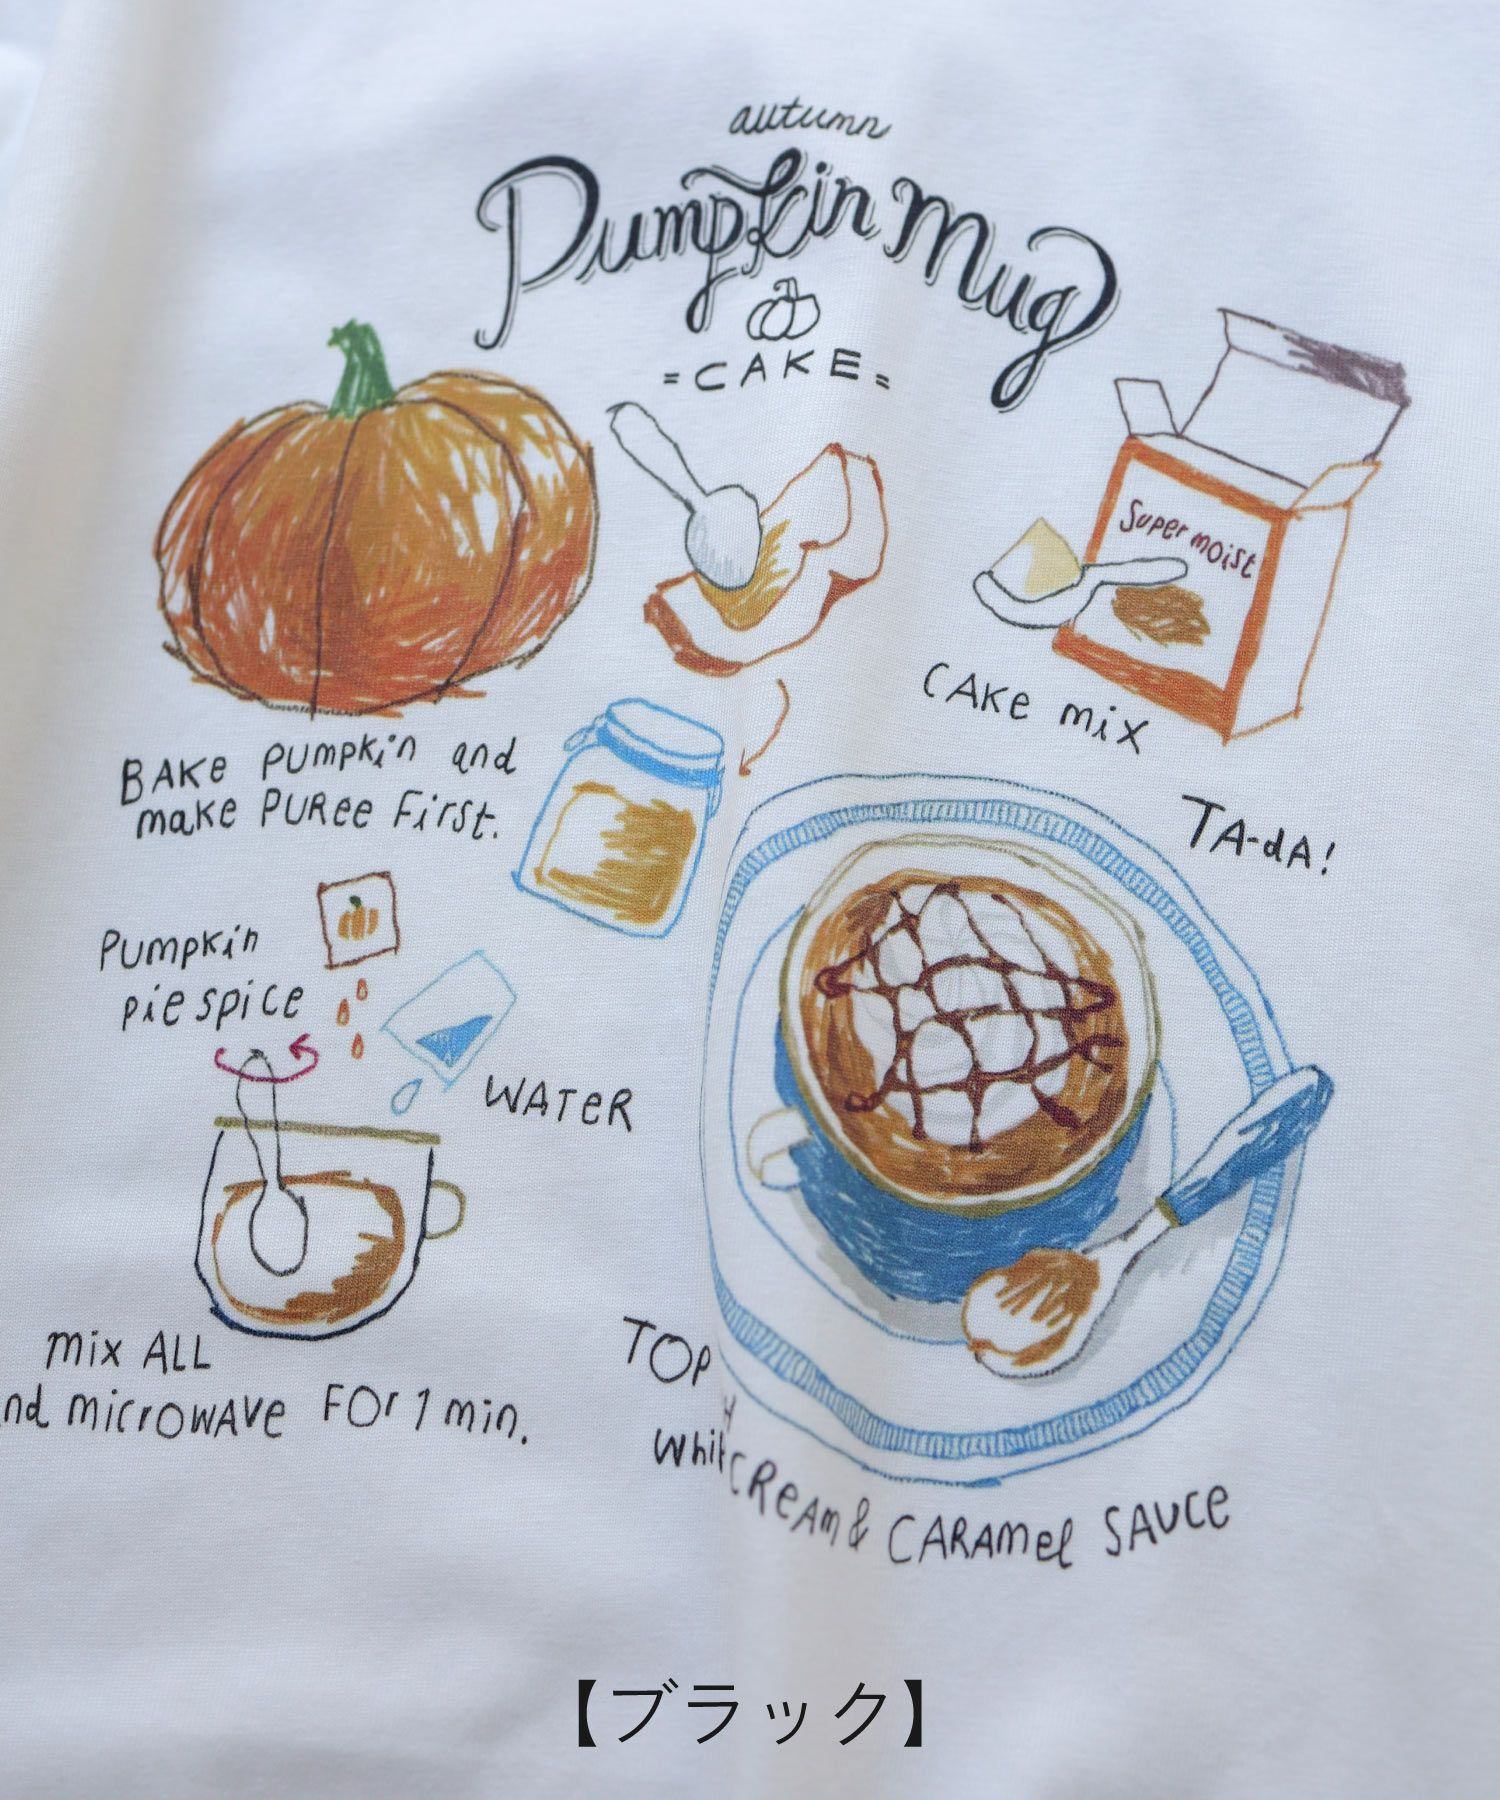 autumn
Pumpkin Mug
= CAKE =
Super moist
CAKe miX
BAKe PUmpkin and
make PUReе First.
TA-dA!
PUmpKin
Pie SPice
WATeR
mix ALL
nd micrOWAVe FOr 1 min.
TOP
CReAm & CARAmel SAUCe
【ブラック】